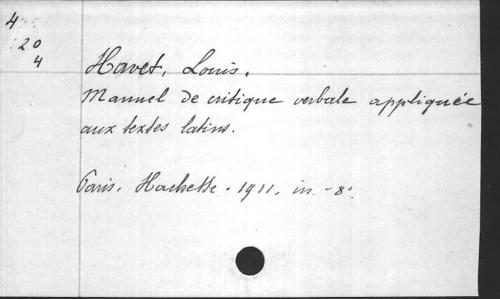 4
20
4
Havet, Louis.
Manuel de critique verbale appliquée
aux textes latins.
Paris. Hachette. 1911. in-8°.